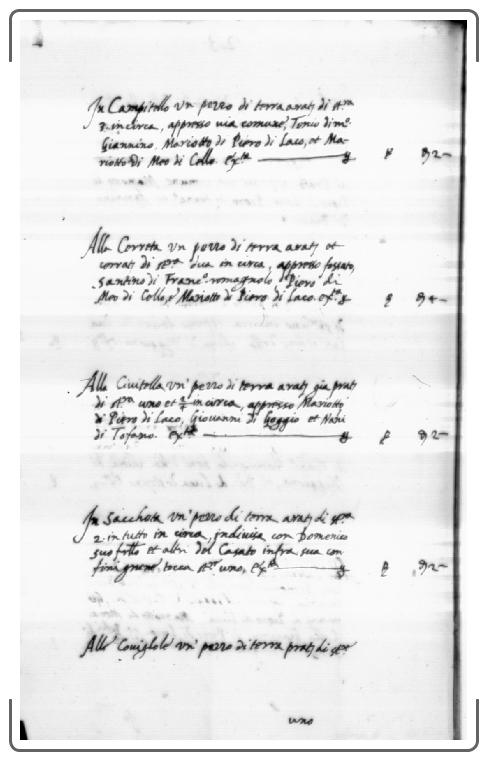 In Campitello un pezzo di terra arat; di st.ra
2. in circa, appresso via comune, Tonio di m.o
Giannino, Mariotto di Piero di Laco, et Ma-
riotto di Meo di Collo.
Alla Correta un pezzo di terra arat; et
corrat; di st.ra dua in circa, appresso fossato,
Santino di Franc.o romagnolo Piero di
Meo di Collo, e Mariotto di Piero di Laco.
Alla Civitella un' pezzo di terra arat; già prat;
di st.ra uno et in circa, appresso Mariotto
di Piero di Laco, Giovanni di Goggio et Nani
di Tofano.
In Sacchota un' pezzo di terra arat; di st.ra
2. in tutto in circa, indivisa con Domenico
suo frllo et altri del Casato infra sua con
fini gnene tocca st.ro uno,
Alle Coviglole un' pezzo di terra prat; di st.ro
uno